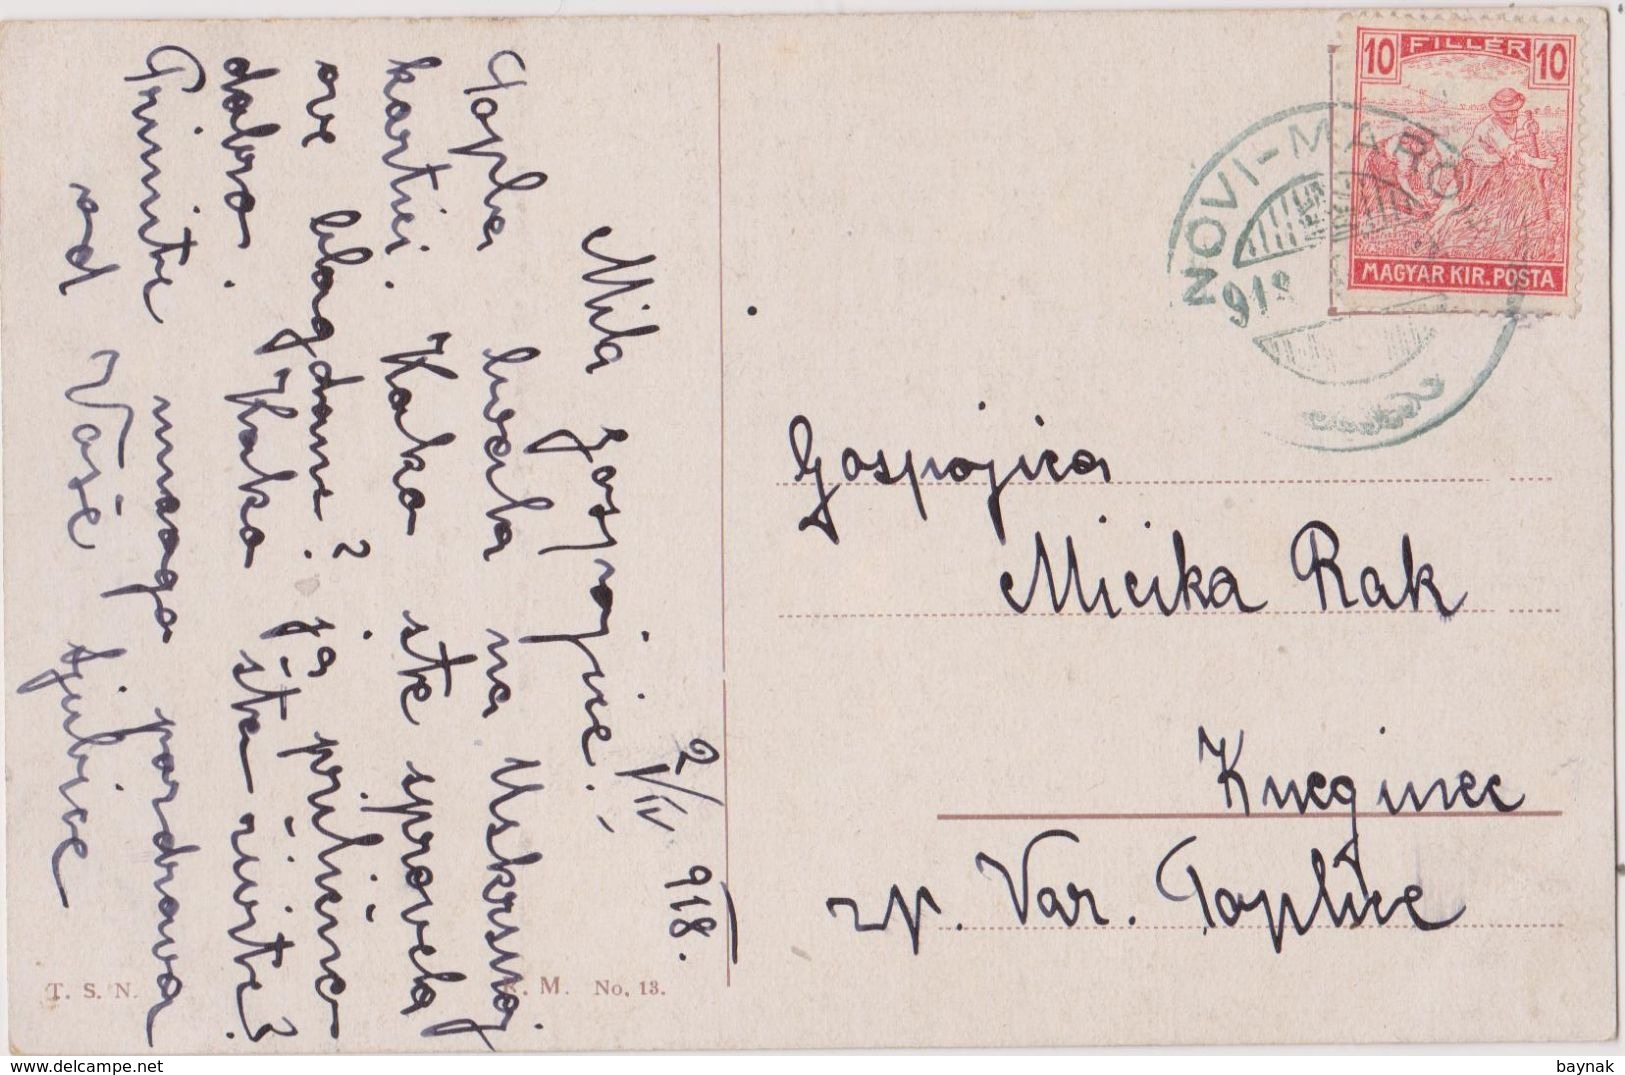 2/IV 918.
Mila gospojice!
Topla hvala na Uskrsnoj
kartici. Kako ste sprovela
ove blagdane? ja prilično
dobro. Kako šta živite?
Primite mnogo pozdrava
od Vaše Ljubice
T. S. N. M. No. 13.
10 FILLÉR 10
MAGYAR KIR. POSTA
NOVI-MARO
918
Gospojica
Micika Rak
Kneginec
zp. Var. Toplice
baynak